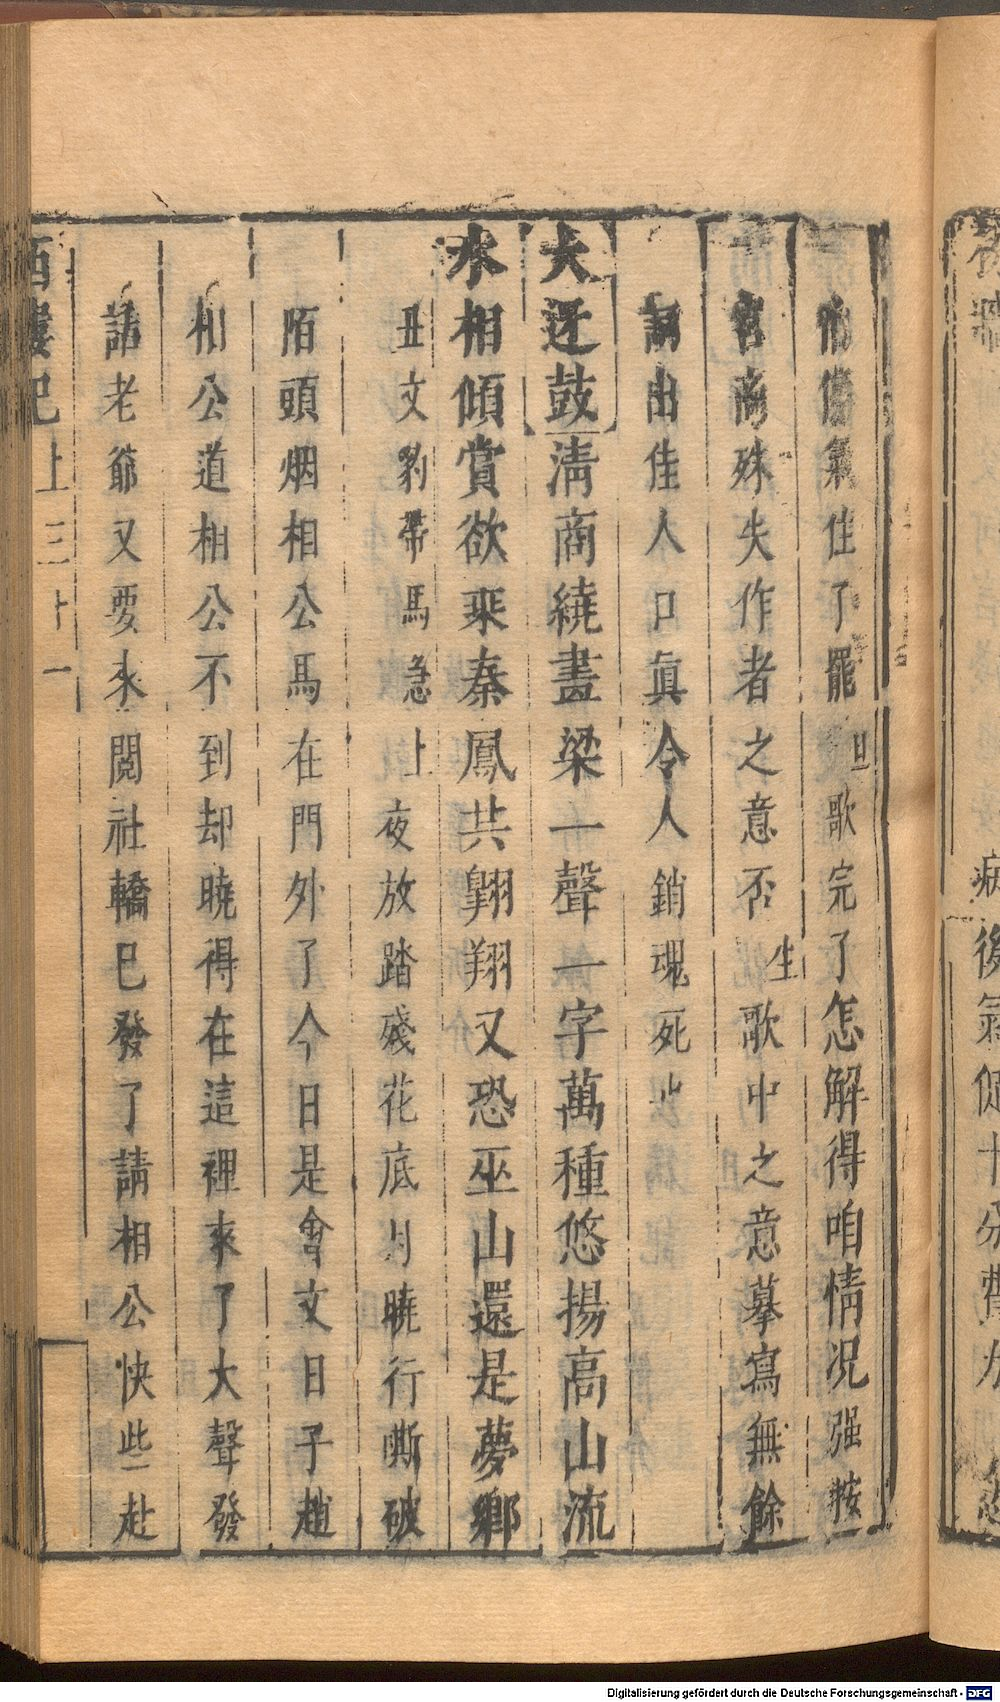 傷氣住了罷旦歌完了怎解得咱情况强按
宮商殊失作者之意否生歌中之意摹寫無餘
詞出佳人口真令人銷魂死也
大迓鼓清商繞畫梁一聲一字萬種悠揚高山流
水相傾賞欲乘秦鳳共翺翔又恐巫山還是夢鄉
丑文豹帶馬急上夜放踏殘花底月曉行嘶破
陌頭烟相公馬在門外了今日是會文日子趙
相公道相公不到却曉得在這裡來了大聲發
話老爺又要來閱社轎已發了請相公快些赴
西樓記上三十一
病後氣促十分費力
Digitalisierung gefördert durch die Deutsche Forschungsgemeinschaft - DFG